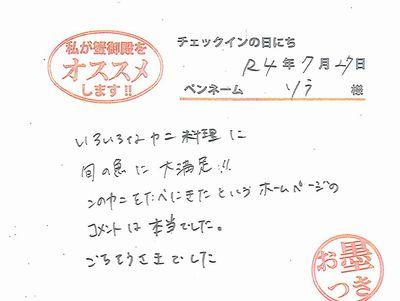 私が蟹御殿を
オススメ
します!!
チェックインの日にち
R4年7月27日
ペンネーム ソラ 様
いろいろなカニ料理に
旬の魚に 大満足!!
このカニをたべにきたというホームページの
コメントは本当でした。
ごちそうさまでした
お墨
つき